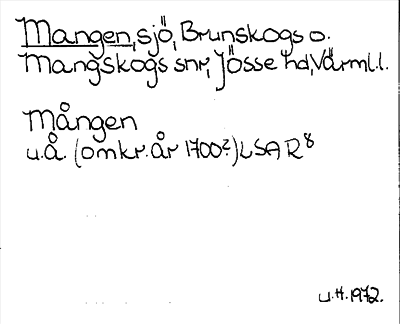 Mangen, sjö, Brunskogs o.
Mangskogs snr, Jösse hd, Värml.l.
Mången
u.å. (omkr. år 1700?) LSA R8
U.H. 1972.